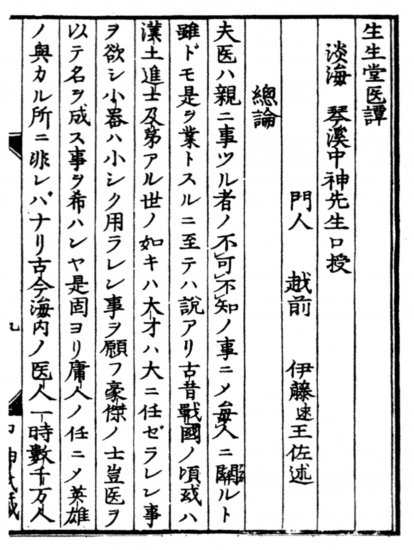 生生堂医譚
淡海 琴溪中神先生口授
門人 越前 伊藤速王佐述
總論
夫医ハ親ニ事ツル者ノ不可不知ノ事ニメ毎人ニ關ルト
雖ドモ是ヲ業トスルニ至テハ説アリ古昔戰國ノ頃或ハ
漢土進士及第アル世ノ如キハ大才ハ大ニ任ゼラレン事
ヲ欲シ小器ハ小シク用ラレン事ヲ願フ豪傑ノ士豈医ヲ
以テ名ヲ成ス事ヲ希ハンヤ是固ヨリ庸人ノ任ニメ英雄
ノ與カル所ニ非レバナリ古今海内ノ医人一時數千万人